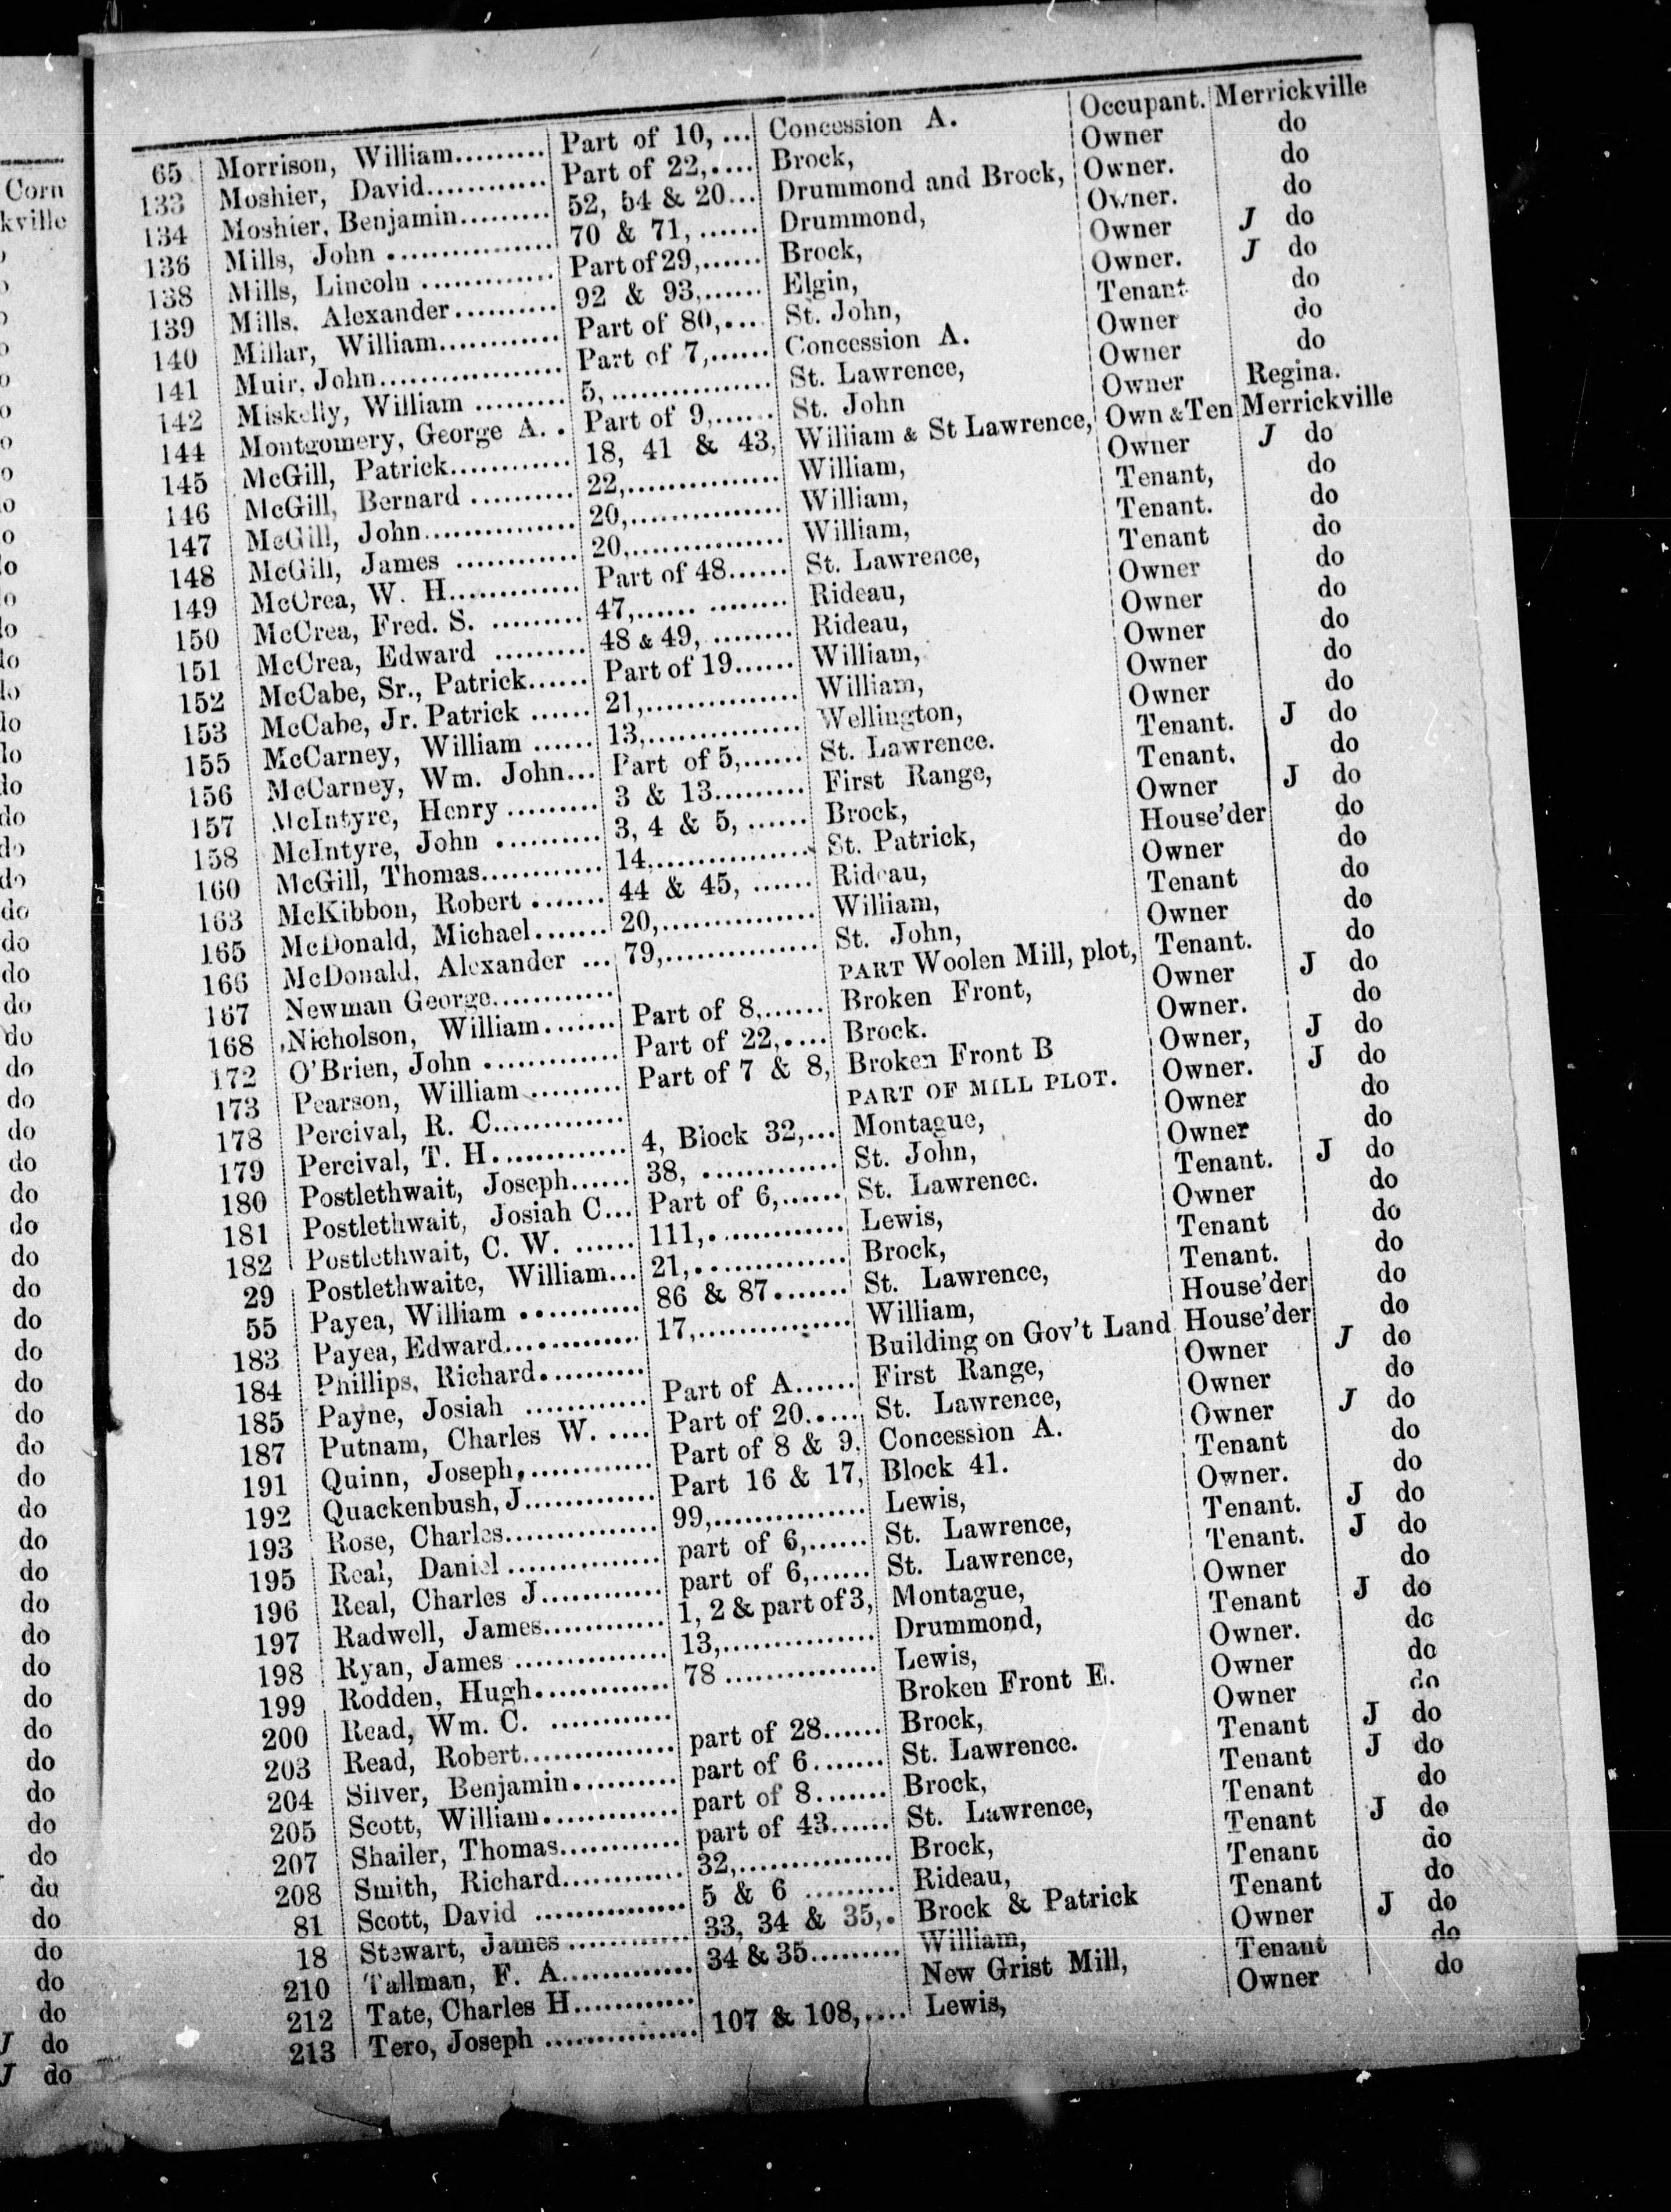 Corn
kville
65 Morrison, William......... Part of 10, ... Concession A. Occupant. Merrickville
133 Moshier, David............ Part of 22,.... Brock, Owner do
134 Moshier, Benjamin......... 52, 54 & 20... Drummond and Brock, Owner. do
136 Mills, John ................ 70 & 71, ...... Drummond, Owner. do
138 Mills, Lincoln ............. Part of 29,...... Brock, Owner J do
139 Mills. Alexander.......... 92 & 93,...... Elgin, Owner. J do
140 Millar, William............ Part of 80,.... St. John, Tenant do
141 Muir, John.................. Part of 7,...... Concession A. Owner do
142 Miskelly, William ......... 5, ............... St. Lawrence, Owner do
144 Montgomery, George A. . Part of 9,...... St. John Owner Regina.
145 McGill, Patrick............ 18, 41 & 43, William & St Lawrence, Own & Ten Merrickville
146 McGill, Bernard .......... 22,............... William, Owner J do
147 McGill, John............... 20,............... William, Tenant, do
148 McGill, James ............ 20,............... William, Tenant. do
149 McCrea, W. H............. Part of 48...... St. Lawrence, Tenant do
150 McCrea, Fred. S. ......... 47,...... ........ Rideau, Owner do
151 McCrea, Edward ......... 48 & 49, ........ Rideau, Owner do
152 McCabe, Sr., Patrick...... Part of 19...... William, Owner do
153 McCabe, Jr. Patrick ...... 21,............... William, Owner do
155 McCarney, William ...... 13,............... Wellington, Owner do
156 McCarney, Wm. John... Part of 5,...... St. Lawrence. Tenant. J do
157 McIntyre, Henry ......... 3 & 13......... First Range, Tenant. do
158 McIntyre, John .......... 3, 4 & 5, ...... Brock, Owner J do
160 McGill, Thomas............ 14,................ St. Patrick, House'der do
163 McKibbon, Robert ....... 44 & 45, ...... Rideau, Owner do
165 McDonald, Michael....... 20,............... William, Tenant do
166 McDonald, Alexander ... 79,............... St. John, Owner do
167 Newman George............ PART Woolen Mill, plot, Tenant. do
168 Nicholson, William....... Part of 8,...... Broken Front, Owner J do
172 O'Brien, John ............. Part of 22,.... Brock. Owner. do
173 Pearson, William ......... Part of 7 & 8, Broken Front B Owner, J do
178 Percival, R. C............. PART OF MILL PLOT. Owner. J do
179 Percival, T. H............. 4, Block 32,... Montague, Owner do
180 Postlethwait, Joseph...... 38, ............. St. John, Owner do
181 Postlethwait, Josiah C... Part of 6,...... St. Lawrence. Tenant. J do
182 Postlethwait, C. W. ...... 111,............. Lewis, Owner do
29 Postlethwaite, William... 21,.............. Brock, Tenant do
55 Payea, William ........... 86 & 87....... St. Lawrence, Tenant. do
183 Payea, Edward............. 17,............... William, House'der do
184 Phillips, Richard.......... Building on Gov't Land House'der do
185 Payne, Josiah ............ Part of A...... First Range, Owner J do
187 Putnam, Charles W. .... Part of 20..... St. Lawrence, Owner do
191 Quinn, Joseph,............ Part of 8 & 9, Concession A. Owner J do
192 Quackenbush, J............. Part 16 & 17, Block 41. Tenant do
193 Rose, Charles............... 99,............... Lewis, Owner. do
195 Real, Daniel ............... part of 6,...... St. Lawrence, Tenant. J do
196 Real, Charles J............ part of 6,...... St. Lawrence, Tenant. J do
197 Radwell, James............ 1, 2 & part of 3, Montague, Owner do
198 Ryan, James ............... 13,............... Drummond, Tenant J do
199 Rodden, Hugh............. 78 ............... Lewis, Owner. do
200 Read, Wm. C. ............ Broken Front E. Owner do
203 Read, Robert............... part of 28...... Brock, Owner do
204 Silver, Benjamin.......... part of 6....... St. Lawrence. Tenant J do
205 Scott, William............. part of 8....... Brock, Tenant J do
207 Shailer, Thomas............ part of 43...... St. Lawrence, Tenant do
208 Smith, Richard............ 32,............... Brock, Tenant J do
81 Scott, David ............... 5 & 6 ......... Rideau, Tenant do
18 Stewart, James ............ 33, 34 & 35,. Brock & Patrick Tenant do
210 Tallman, F. A............. 34 & 35......... William, Owner J do
212 Tate, Charles H............ New Grist Mill, Tenant do
213 Tero, Joseph ............... 107 & 108,.... Lewis, Owner do